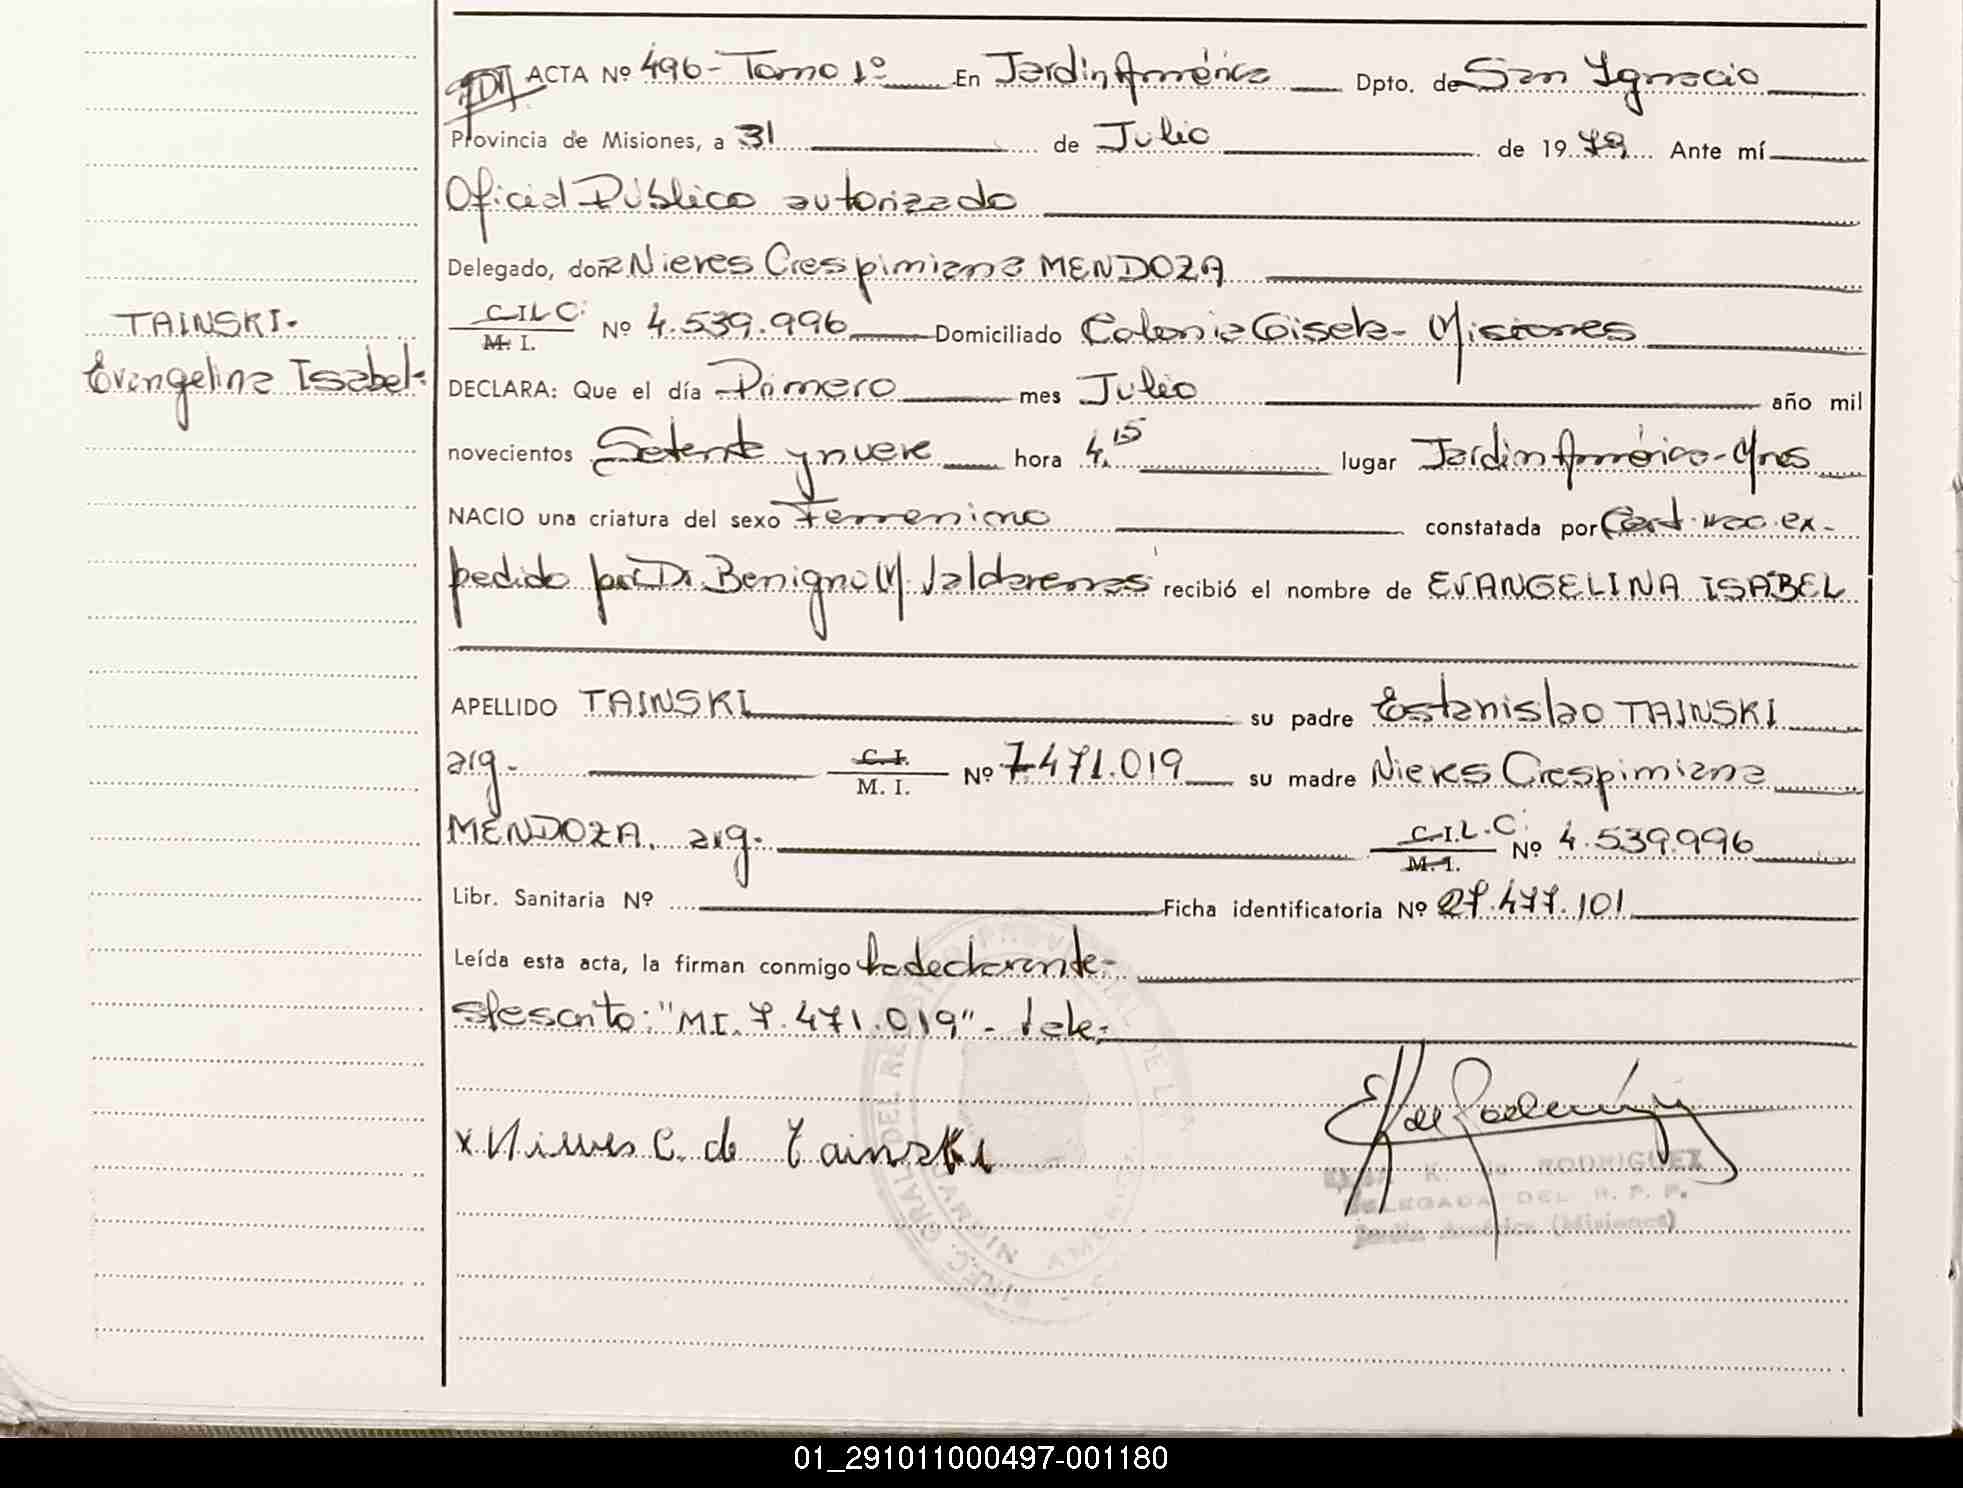 ACTA Nº 496 - Tomo 1º En Jardin América Dpto. de San Ignacio
Provincia de Misiones, a 31 de Julio de 1979. Ante mí
Oficial Público autorizado
Delegado, doña Nieves Crespimiana MENDOZA
TAINSKI.
C.I.L.C. M. I. Nº 4.539.996 Domiciliado Colonia Gisela - Misiones
Evangelina Isabel.
DECLARA: Que el día Primero mes Julio año mil
novecientos Setenta y nueve hora 4.15 lugar Jardin América - Mnes
NACIO una criatura del sexo Femenino constatada por Cert. nac. ex-
pedido por Dr. Benigno M. Valdarenas recibió el nombre de EVANGELINA ISABEL
APELLIDO TAINSKI su padre Estanislao TAINSKI
arg. C. I. M. I. Nº 7.471.019 su madre Nieves Crespimiana
MENDOZA. arg. C.I.L.C. M. I. Nº 4.539.996
Libr. Sanitaria Nº Ficha identificatoria Nº 27.477.101
Leída esta acta, la firman conmigo la declarante -
s/escrito: "MI. 7.471.019" - Vale.
x Nieves C. de Tainski
K. de RODRIGUEZ
DELEGADA DEL R. P. P.
Jardín América (Misiones)
01_291011000497-001180